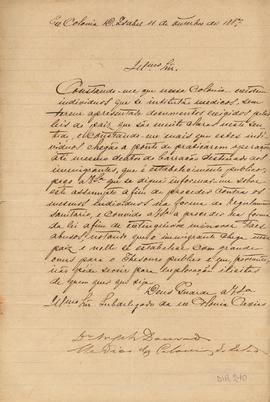 Ex Colonia D. Isabel 11 de de 187
Illmo Snr.
Constando-me que nessa Colonia existem
individuos que se intitulão medicos, sem
terem apresentado documentos exigidos pelas
leis do paiz, que são muito claras neste sen-
tido, e constando-me mais que estes indi-
viduos chegão a ponto de praticarem operações
até mesmo dentro do barracão destinado aos
immigrantes, que é estabelecimento publico;
peço a VSa que se digne informar-me sobre
este assumpto a fim de proceder contra os
mesmos individuos na forma do Regulamento
sanitario, e convido a VSa a proceder na forma
da lei a fim de
abusos, visto que o immigrante chega
paiz e nelle se estabelece com grande
onus para o Thesouro publico e que portanto,
não póde servir para exploração illicita
de quem quer que seja.
Deus Guarde a VSa
Illmo Snr Subdelegado da ex Colonia Caxias
Dr
Me
DIA 240